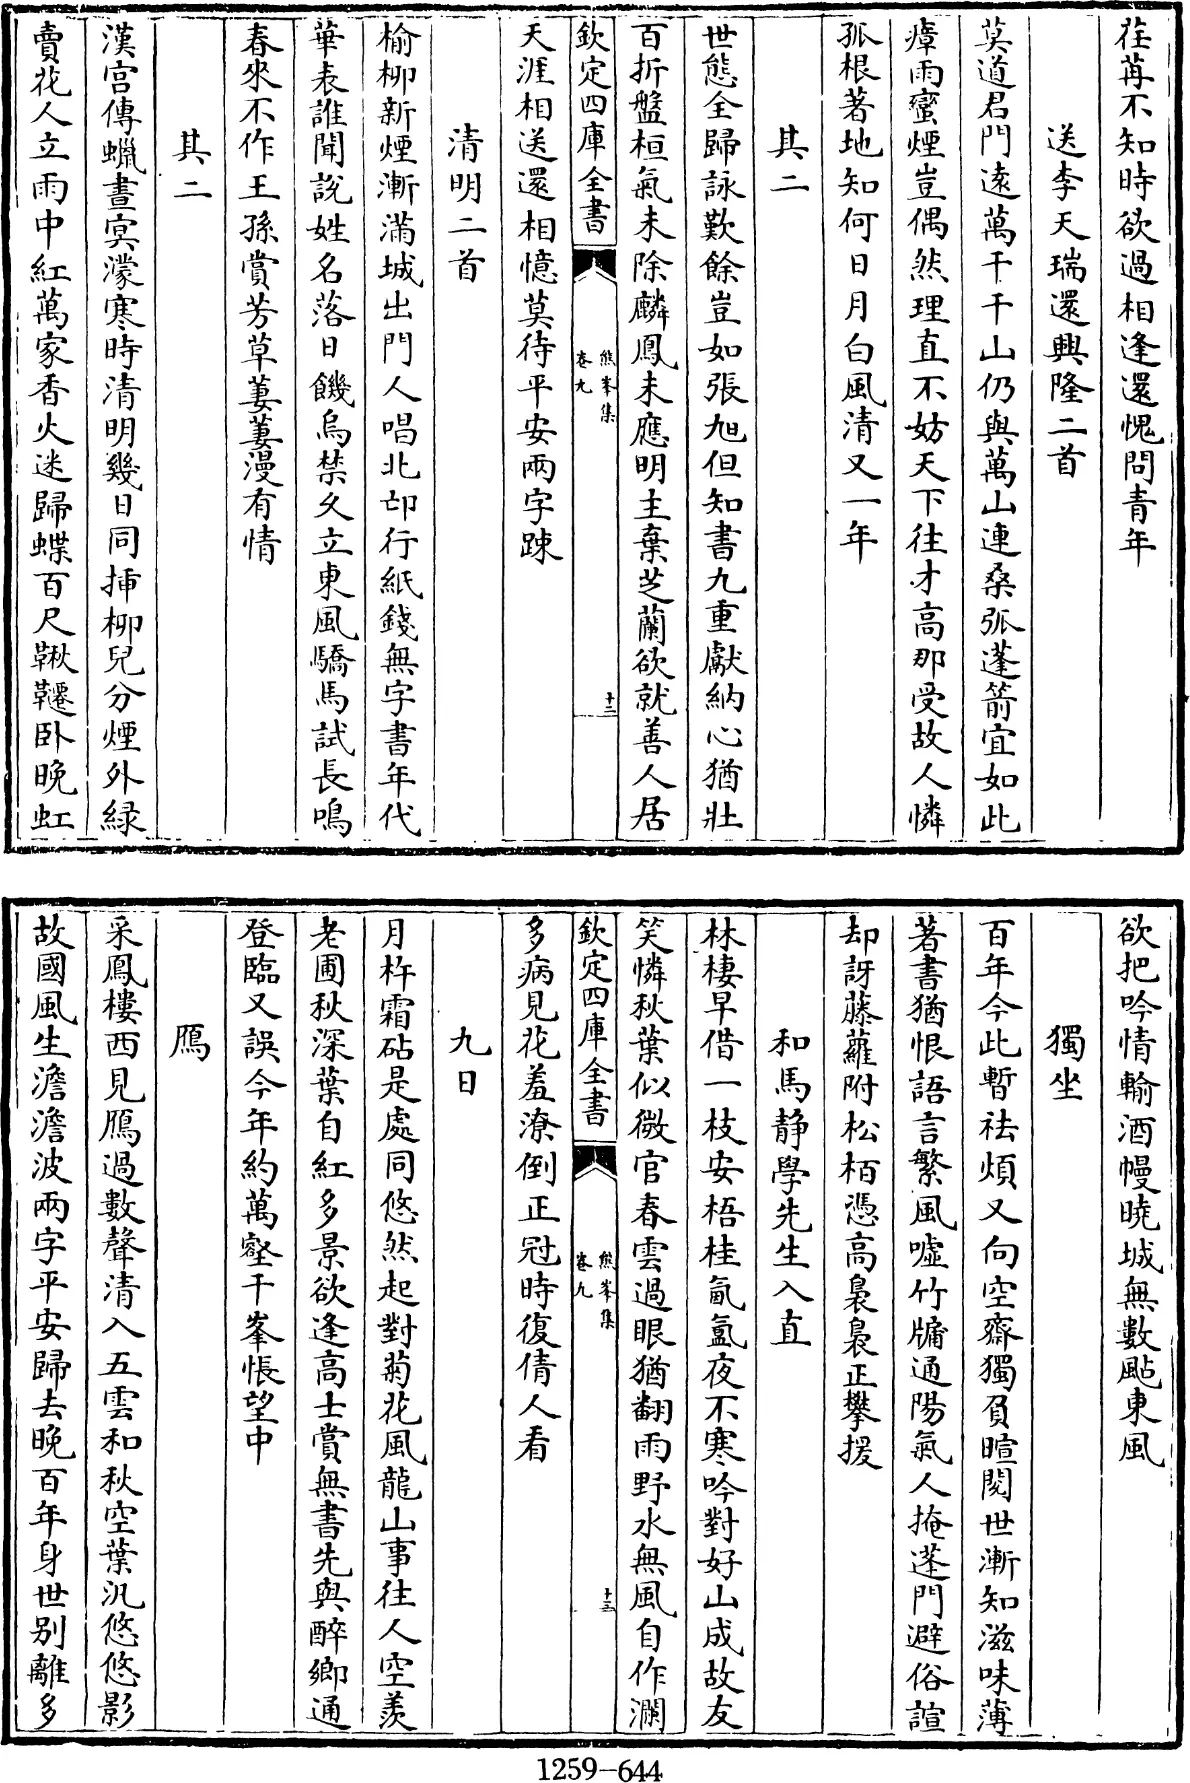 荏苒不知時欲過相逢還愧問青年
送李天瑞還興隆二首
莫道君門逺萬千千山仍與萬山連桑弧蓬箭宜如此
瘴雨蠻煙豈偶然理直不妨天下往才高那受故人憐
孤根著地知何日月白風清又一年
其二
世態全歸詠歎餘豈如張旭但知書九重獻納心猶壯
百折盤桓氣未除麟鳳未應明主棄芝蘭欲就善人居
欽定四庫全書
熊峯集
卷九
十二
天涯相送還相憶莫待平安兩字踈
清明二首
榆柳新煙漸滿城出門人唱北邙行紙錢無字書年代
華表誰聞說姓名落日饑烏禁久立東風驕馬試長鳴
春來不作王孫賞芳草萋萋漫有情
其二
漢宫傳蠟晝㝠濛寒時清明幾日同挿柳兒分煙外緑
賣花人立雨中紅萬家香火迷歸蝶百尺鞦韆卧晚虹
欲把吟情輸酒幔曉城無數颭東風
獨坐
百年今此暫祛煩又向空齋獨負暄閲世漸知滋味薄
著書猶恨語言繁風噓竹牖通陽氣人掩蓬門避俗諠
却訝藤蘿附松栢憑高裊裊正攀援
和馬静學先生入直
林棲早借一枝安梧桂氤氲夜不寒吟對好山成故友
笑憐秋葉似微官春雲過眼猶翻雨野水無風自作瀾
欽定四庫全書
熊峯集
卷九
十三
多病見花羞潦倒正冠時復倩人看
九日
月杵霜砧是處同悠然起對菊花風龍山事往人空羨
老圃秋深葉自紅多景欲逢高士賞無書先與醉鄉通
登臨又誤今年約萬壑千峯悵望中
鴈
采鳳樓西見鴈過數聲清入五雲和秋空葉汎悠悠影
故國風生澹澹波兩字平安歸去晚百年身世別離多
1259-644